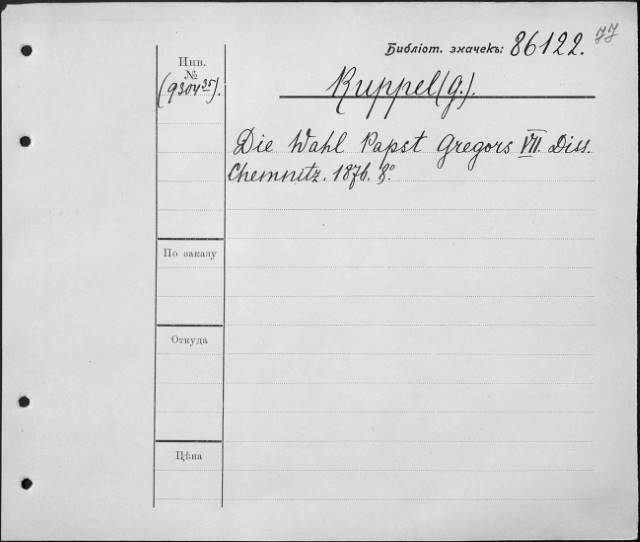 Библіот. значекъ: 86122.
Инв.
№
(9304³⁵).
Ruppel (G.).
Die Wahl Papst Gregors VII. Diss.
Chemnitz. 1876. 8°
По заказу
Откуда
Цѣна